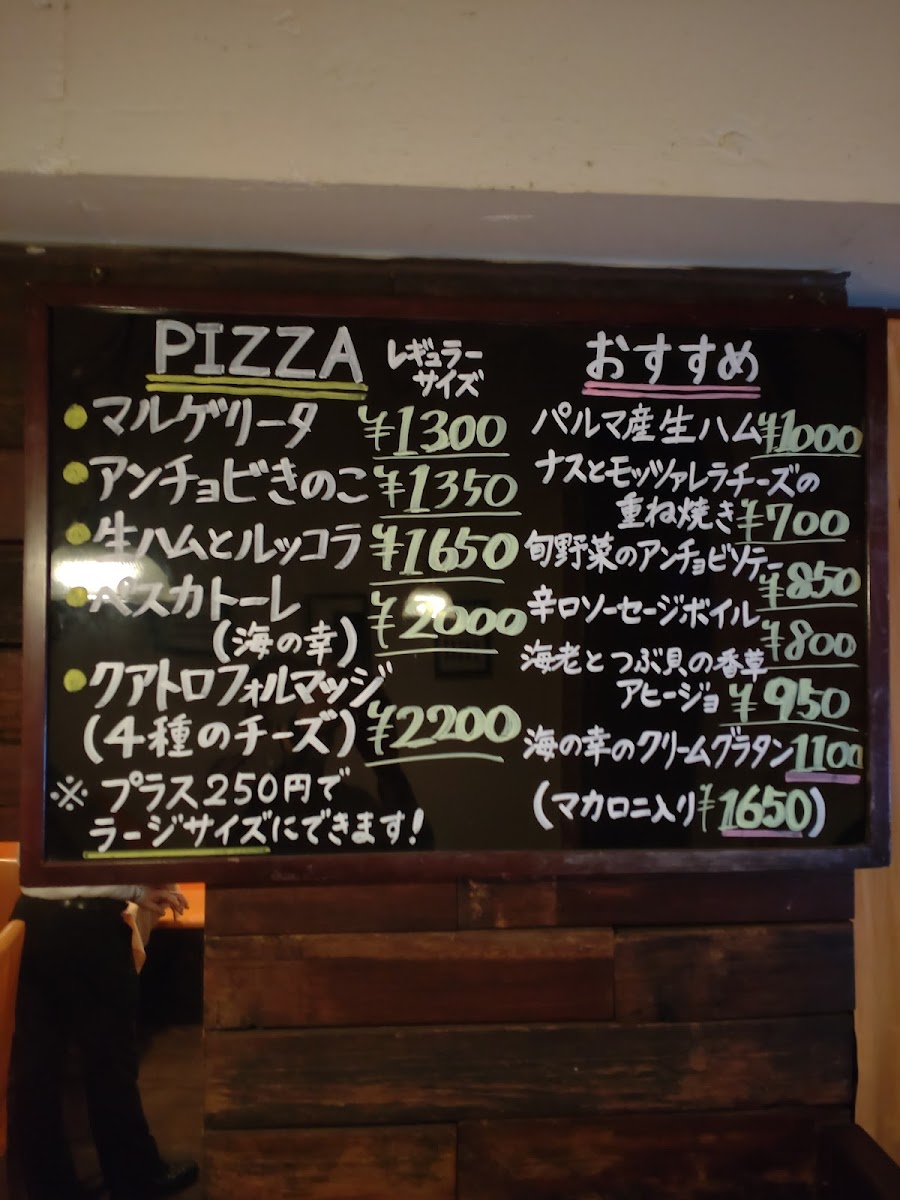 PIZZA レギュラーサイズ
マルゲリータ ¥1300
アンチョビきのこ ¥1350
生ハムとルッコラ ¥1650
ペスカトーレ
(海の幸) ¥2000
クアトロフォルマッジ
(4種のチーズ) ¥2200
※ プラス250円で
ラージサイズにできます!
おすすめ
パルマ産生ハム ¥1000
ナスとモッツァレラチーズの
重ね焼き ¥700
旬野菜のアンチョビソテー
¥850
辛口ソーセージボイル
¥800
海老とつぶ貝の香草
アヒージョ ¥950
海の幸のクリームグラタン 1100
(マカロニ入り ¥1650)